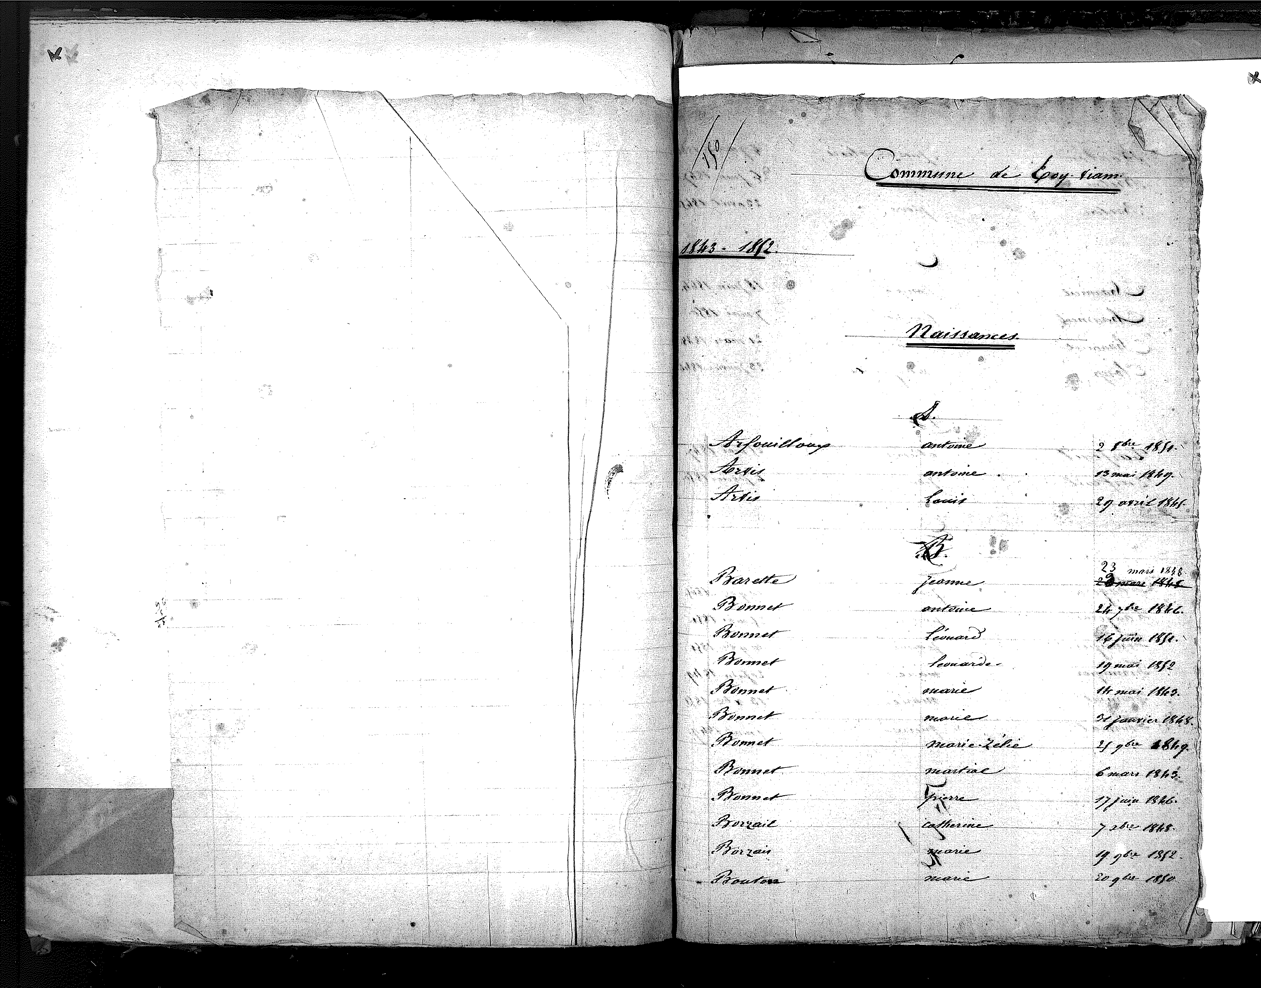 150
Commune de Eyjeam
1843 - 1852.
Naissances.
A.
Arfouilloux antoine 2 8bre 1851.
Artis antoine 13 mai 1849.
Artis Louis 29 avril 1845.
B.
23 mars 1848
Barette jeanne
Bonnet antoine 24 7bre 1846.
Bonnet Léonard 16 juin 1851.
Bonnet leonarde 19 mai 1852
Bonnet marie 14 mai 1843.
Bonnet marie 31 janvier 1848.
Bonnet marie-Zélie 25 9bre 1849.
Bonnet martial 6 mars 1843.
Bonnet pierre 17 juin 1846.
Borzail catherine 7 xbre 1848.
Borzais marie 19 9bre 1852.
Bouton marie 20 9bre 1850.